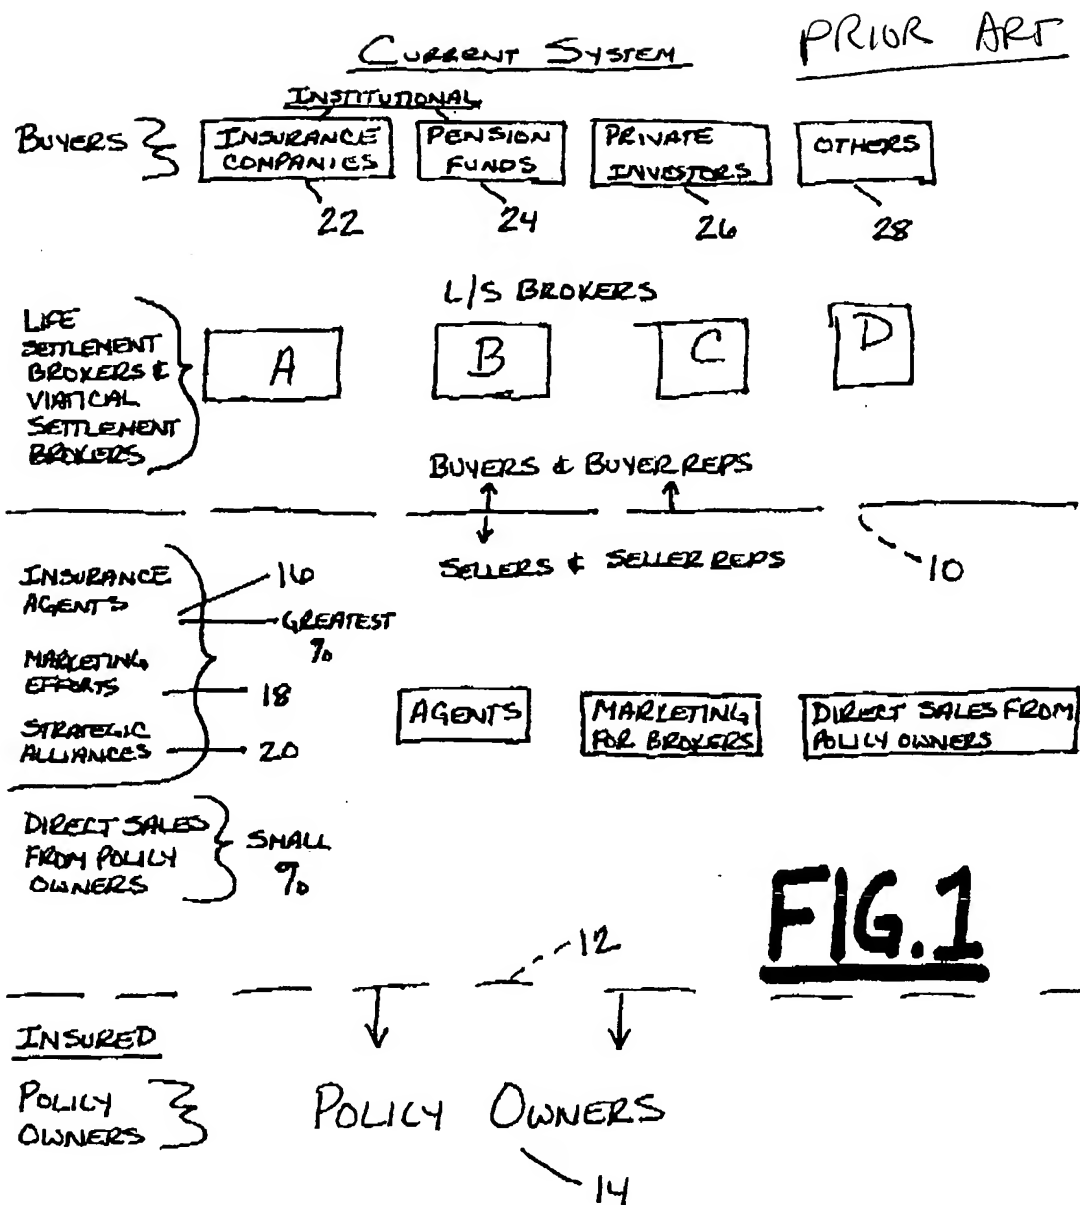 CURRENT SYSTEM
PRIOR ART
INSTITUTIONAL
BUYERS
INSURANCE
COMPANIES
PENSION
FUNDS
PRIVATE
INVESTORS
OTHERS
22
24
26
28
L/S BROKERS
LIFE
SETTLEMENT
BROKERS &
VIATICAL
SETTLEMENT
BROKERS
A
B
C
D
BUYERS & BUYER REPS
SELLERS & SELLER REPS
10
INSURANCE
AGENTS
16
GREATEST
%
MARKETING
EFFORTS
18
STRATEGIC
ALLIANCES
20
AGENTS
MARKETING
FOR BROKERS
DIRECT SALES FROM
POLICY OWNERS
DIRECT SALES
FROM POLICY
OWNERS
SMALL
%
FIG.1
12
INSURED
POLICY
OWNERS
POLICY OWNERS
14